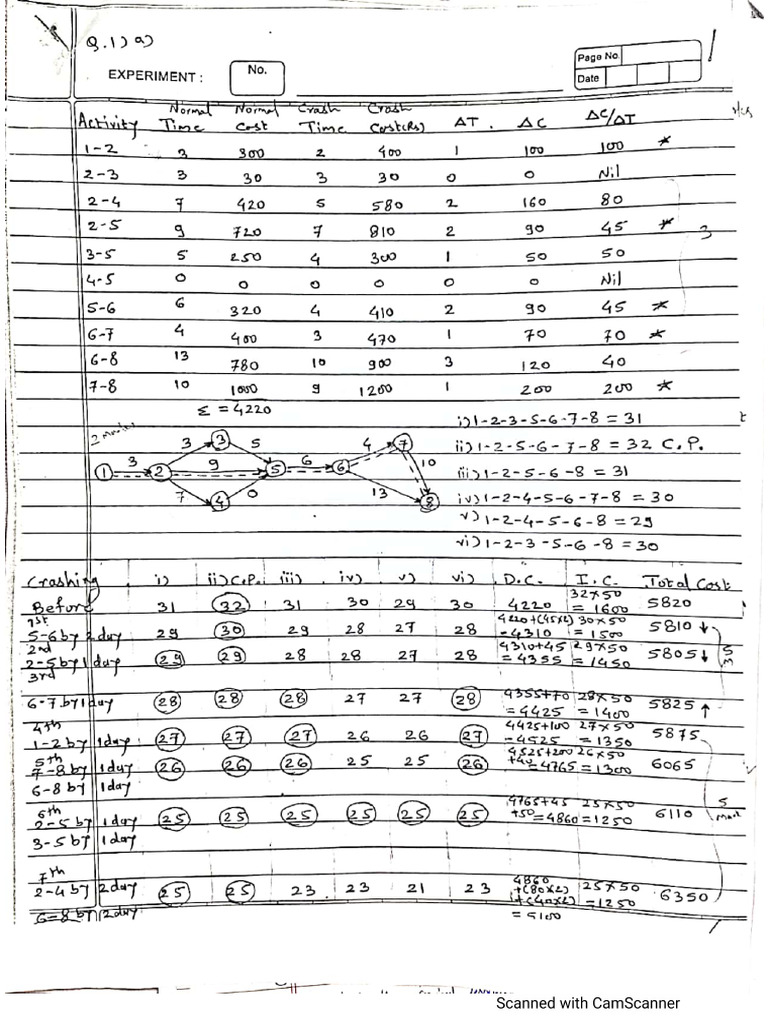 Q.1) a)
EXPERIMENT :
No.
Page No
Date
1
Activity Normal Time Normal Cost Crash Time Crash Cost(Rs) ΔT . ΔC ΔC/ΔT
1-2 3 300 2 400 1 100 100 *
2-3 3 30 3 30 0 0 Nil
2-4 7 420 5 580 2 160 80
2-5 9 720 7 810 2 90 45 *
3
3-5 5 250 4 300 1 50 50
4-5 0 0 0 0 0 0 Nil
5-6 6 320 4 410 2 90 45 *
6-7 4 400 3 470 1 70 70 *
6-8 13 780 10 900 3 120 40
7-8 10 1000 9 1200 1 200 200 *
Σ = 4220
i) 1-2-3-5-6-7-8 = 31
ii) 1-2-5-6-7-8 = 32 C.P.
iii) 1-2-5-6-8 = 31
iv) 1-2-4-5-6-7-8 = 30
v) 1-2-4-5-6-8 = 29
vi) 1-2-3-5-6-8 = 30
3 3 5 4 7
1 3 2 9 5 6 6 10
7 4 0 13 8
Crashing i) ii) C.P. iii) iv) v) vi) D.C. I.C. Total Cost
Before 31 32 31 30 29 30 4220 32x50 = 1600 5820
1st
5-6 by 2 day 29 30 29 28 27 28 4220+(45x2) = 4310 30x50 = 1500 5810 ↓
2nd
2-5 by 1 day 29 29 28 28 27 28 4310+45 = 4355 29x50 = 1450 5805 ↓
5 M
3rd
6-7 by 1 day 28 28 28 27 27 28 4355+70 = 4425 28x50 = 1400 5825 ↑
4th
1-2 by 1 day 27 27 27 26 26 27 4425+100 = 4525 27x50 = 1350 5875
5th
7-8 by 1 day 26 26 26 25 25 26 4525+200 +40 = 4765 26x50 = 1300 6065
6-8 by 1 day
6th
2-5 by 1 day 25 25 25 25 25 25 4765+45 +50 = 4860 25x50 = 1250 6110
5
3-5 by 1 day
7th
2-4 by 2 day 25 25 23 23 21 23 4860 +(80x2) +(40x2) = 5100 25x50 = 1250 6350
6-8 by 2 day
Scanned with CamScanner